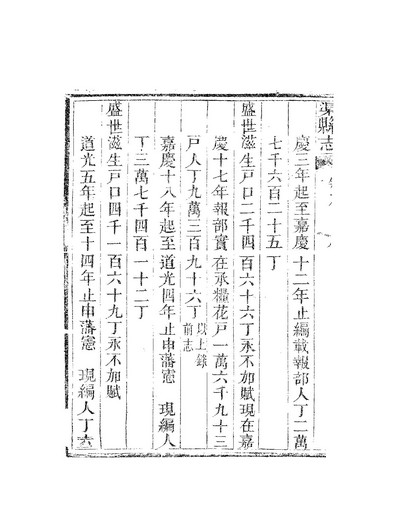 渠縣志
慶三年起至嘉慶十二年止編載報部人丁二萬
七千六百二十五丁
盛世滋生戸口二千四百六十六丁永不加賦現在嘉
慶十七年報部實在承糧花戸一萬六千九十三
戸人丁九萬三百九十六丁以上錄前志
嘉慶十八年起至道光四年止申藩憲 現編人
丁三萬七千四百一十二丁
盛世滋生戸口四千一百六十九丁永不加賦
道光五年起至十四年止申藩憲 現編人丁六